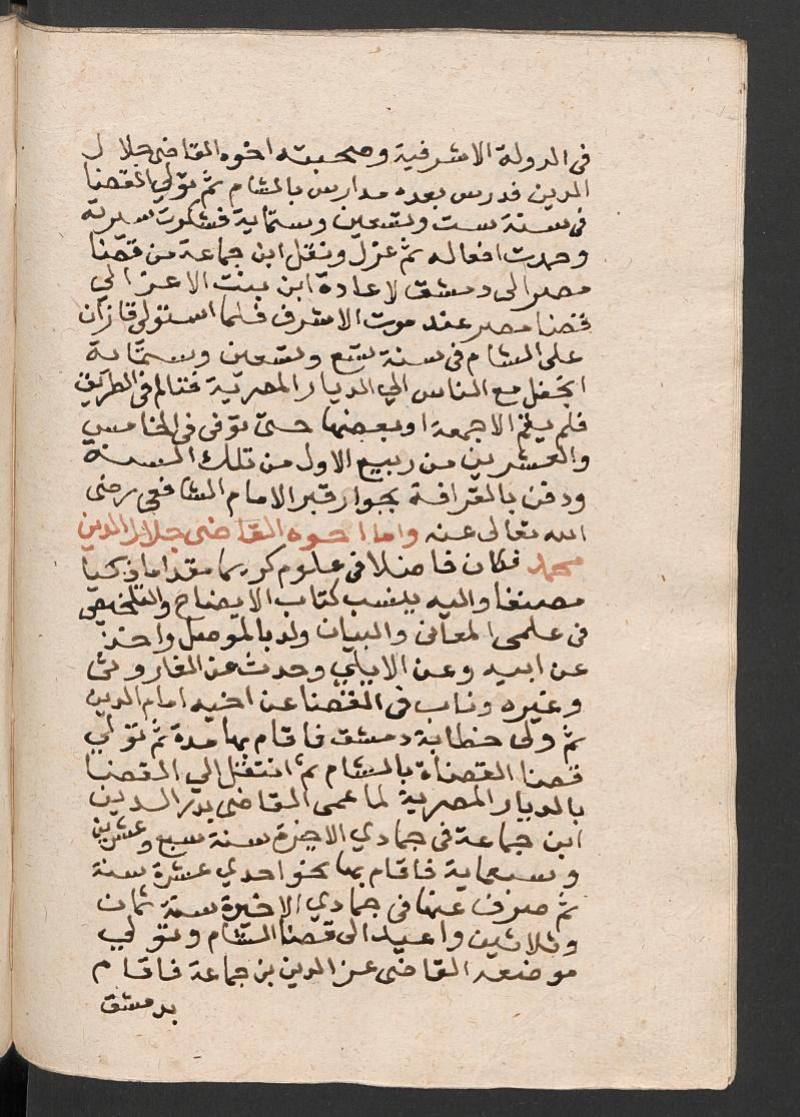 فى الدولة الاشرفية وصحبته اخوه القاضى جلال
الدين فدرس بعده مدارس بالشام ثم تولي القضا
فى سنة ست وتسعين وستماية فشكرت سيرته
وحمدت افعاله ثم عزل ونقل ابن جماعة من قضا
مصر الى دمشق لاعادة ابن بنت الاعز الي
قضا مصر عند موت الاشرف فلما استولى قازان
على الشام فى سنة تسع وتسعين وستماية
انجفل مع الناس الي الديار المصرية فتالم فى الطريق
فلم يقم الا جمعة او بعضها حتى توفى فى الخامس
والعشرين من ربيع الاول من تلك السنة
ودفن بالقرافة بجوار قبر الامام الشافعى رضى
الله تعالى عنه واما اخوه القاضى جلال الدين
محمد فكان فاضلا فى علوم كريما مقداما ذكيا
مصنفا واليه ينسب كتاب الايضاح والتلخيص
فى علمى المعانى والبيان ولد بالموصل واخذ
عن ابيه وعن الايلي وحدث عن الفاروثى
وغيره وناب فى القضا عن اخيه امام الدين
ثم ولى خطابة دمشق فاقام بها مدة ثم تولي
قضا القضاة بالشام ثم انتقل الي القضا
بالديار المصرية لما عمى القاضى بدر الدين
ابن جماعة فى جمادي الاخرة سنة سبع وعشرين
وسبعماية فاقام بها نحو احدي عشرة سنة
ثم صرف عنها فى جمادي الاخيرة سنة ثمان
وثلاثين واعيد الى قضا الشام وتولي
موضعه القاضى عز الدين بن جماعة فاقام
بدمشق